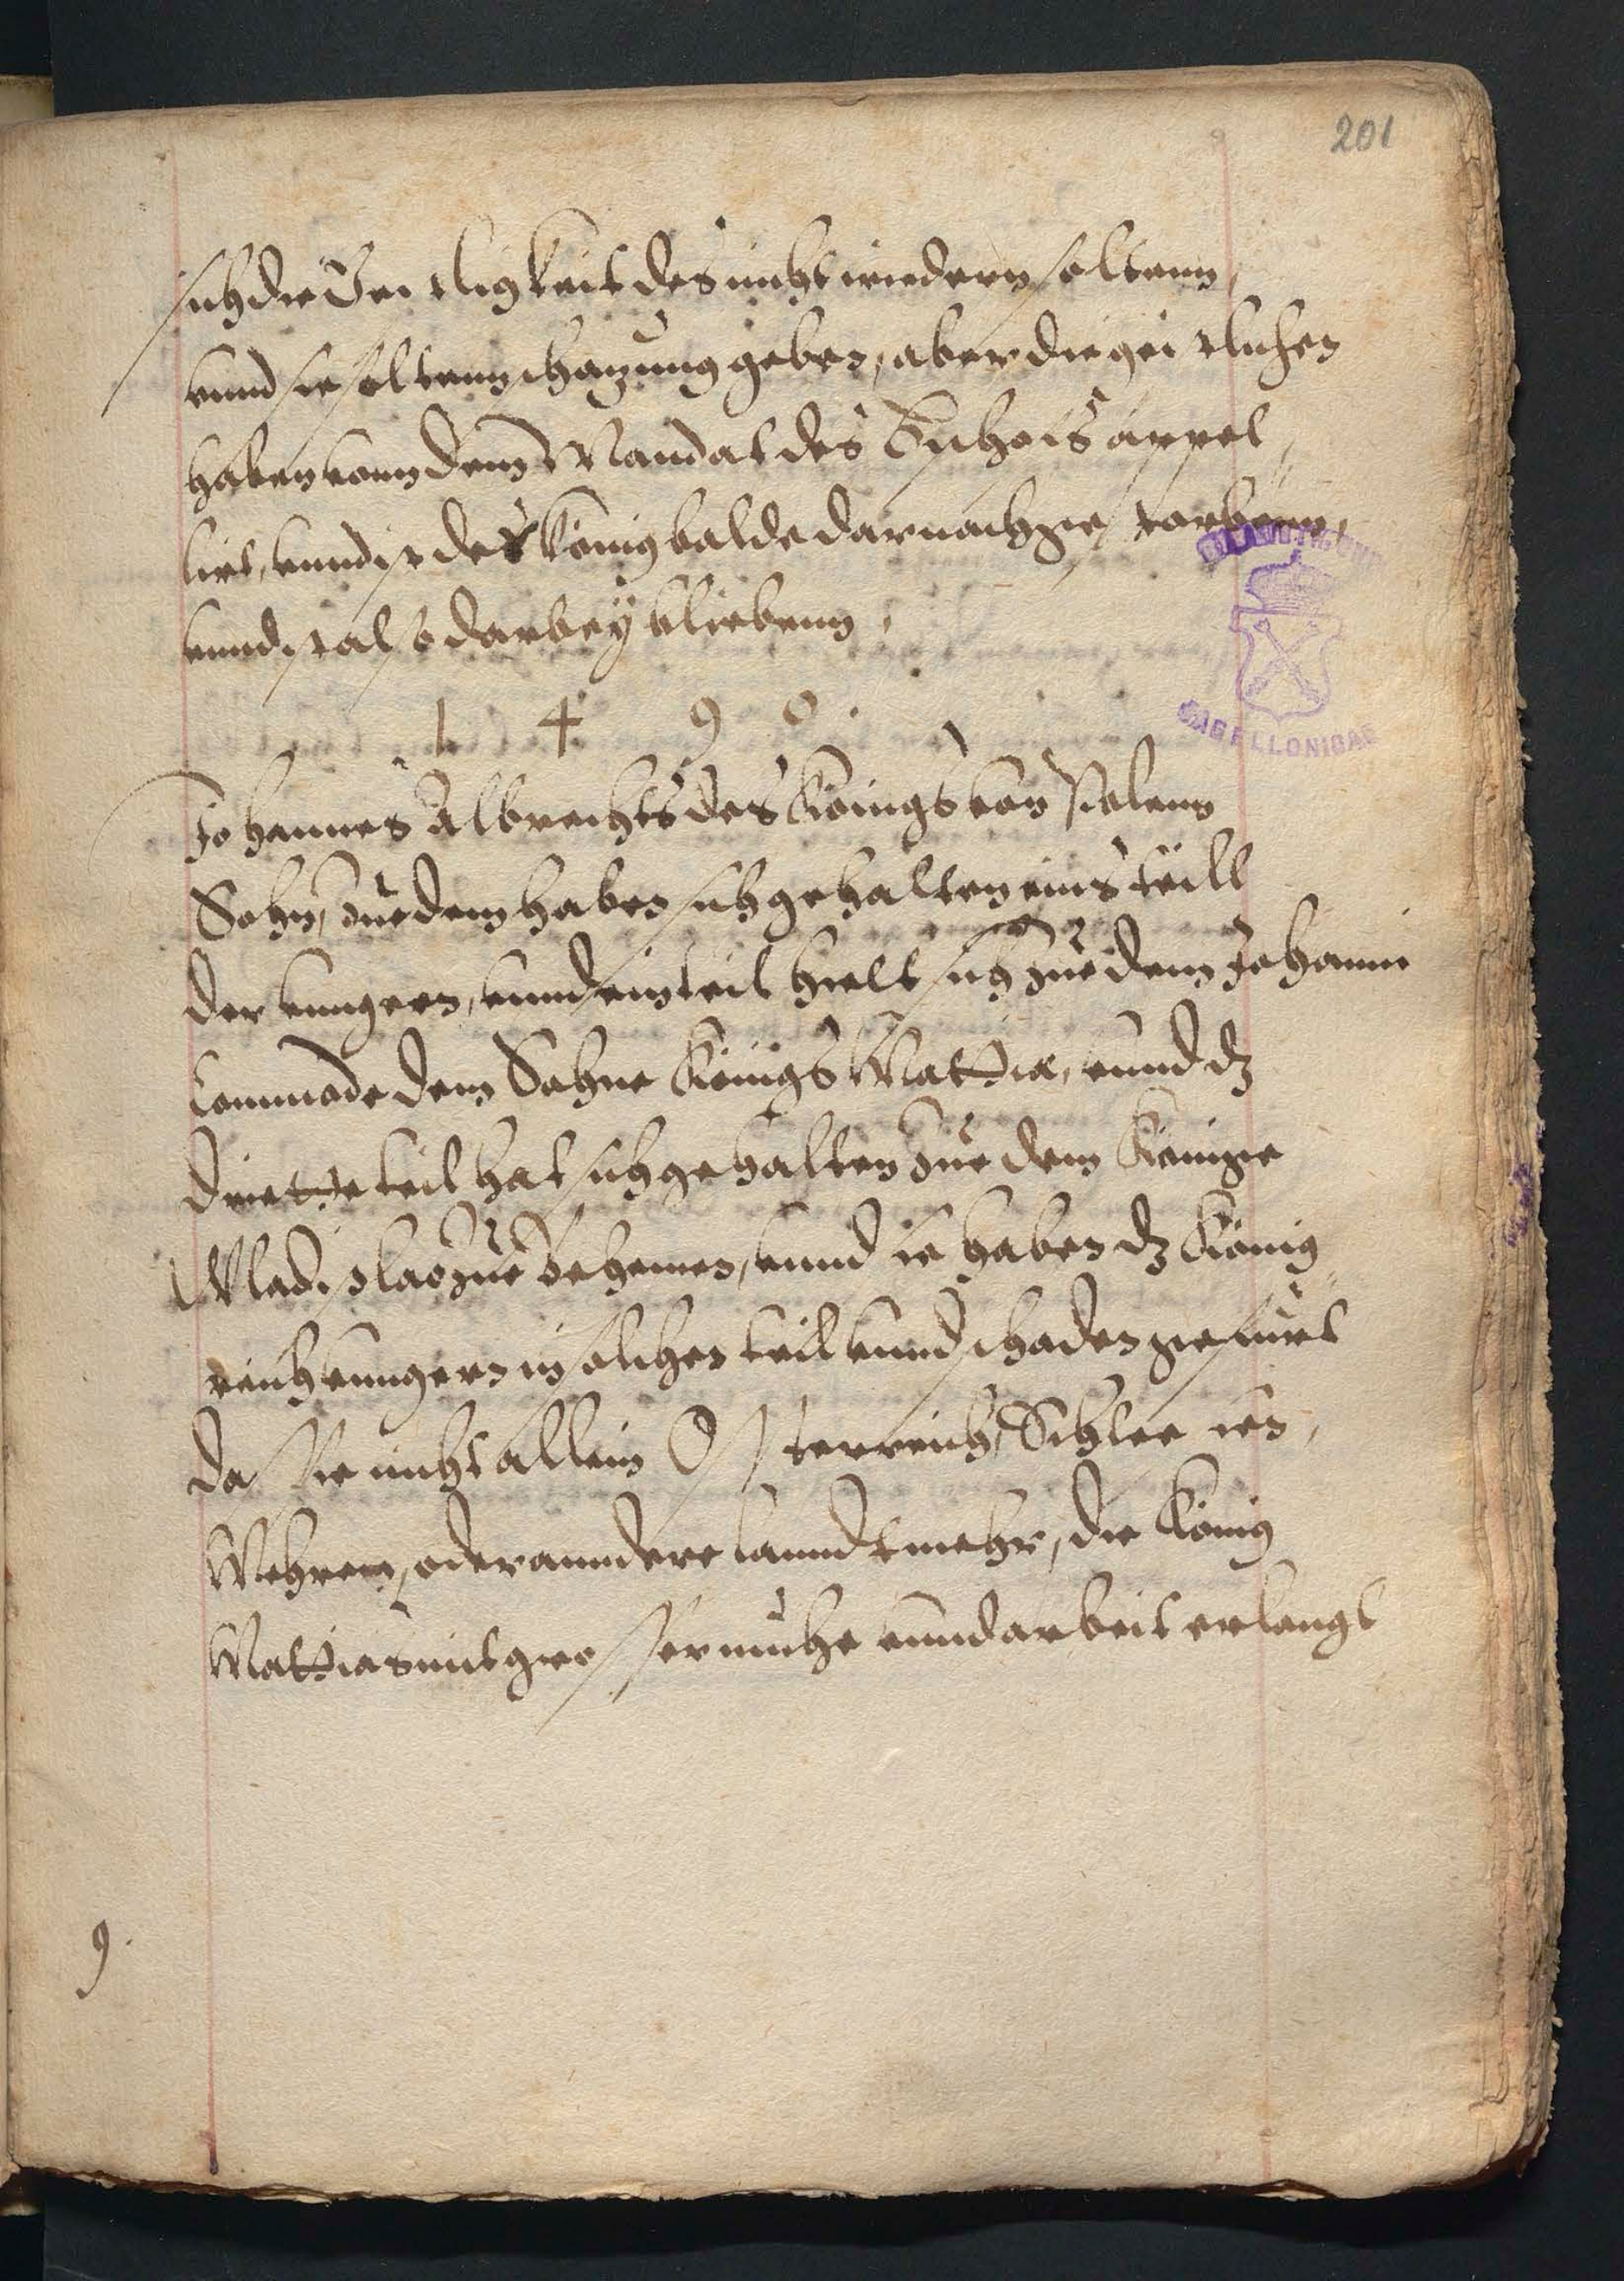 201
sich die Geistligkeit des nicht wiedern soltenn,
unnd sie soltenn schazung geben, aber die geistlichen
haben vonn dem Mandat des Bischofs appel¬
lirt, unnd ist der König balde darnach gestorbenn,
unnd ist also darbey bliebenn,
1 4 9 0.
Johannes Albrecht des Königs von Polenn
Sohn, zue dem haben sich gehalten eins teill
der Vngern, unnd ein teil hielt sich zue dem Johanni
dem Sohne Königs Matthiae, unnd dz
driette teil hat sich gehalten zue dem Könige
Wladislao zue Behemen, unnd sie haben dz König¬
reich Vngern in solchen teil unnd schaden gefürt
das sie nicht allein Osterreich, Schlesien,
Mehren, oder anndere lanndt mehr, die König
Matthias mit grosser mühe unnd arbeit erlangt
9.
JAGELLONICAE